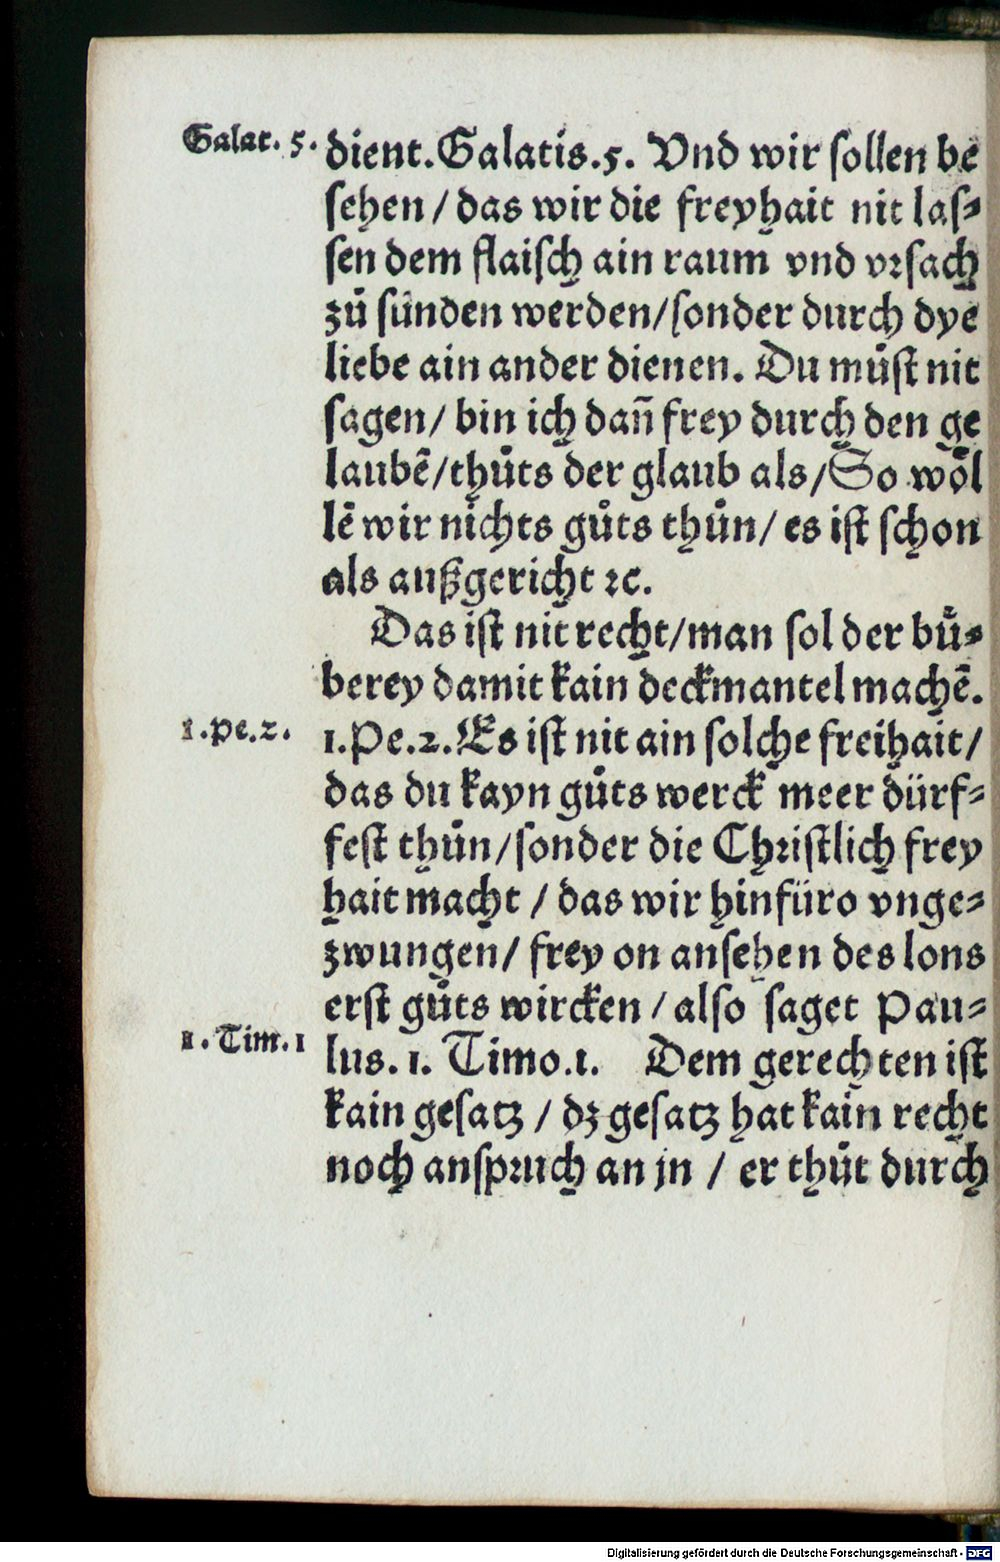 Galat. 5.
dient. Galatis. 5. Vnd wir sollen be
sehen / das wir die freyhait nit las⸗
sen dem flaisch ain raum vnd vrsach
zů sünden werden / sonder durch dye
liebe ain ander dienen. Du můst nit
sagen / bin ich dañ frey durch den ge
laubẽ / thůts der glaub als / So wöl
lẽ wir nichts gůts thůn / es ist schon
als außgericht ꝛc.
Das ist nit recht / man sol der bů⸗
berey damit kain deckmantel machẽ.
1. Pe. 2.
1. Pe. 2. Es ist nit ain solche freihait /
das du kayn gůts werck meer dürf⸗
fest thůn / sonder die Christlich frey
hait macht / das wir hinfüro vnge⸗
zwungen / frey on ansehen des lons
erst gůts wircken / also saget Pau⸗
1. Tim. 1
lus. 1. Timo. 1. Dem gerechten ist
kain gesatz / dz gesatz hat kain recht
noch anspruch an jn / er thůt durch
Digitalisierung gefördert durch die Deutsche Forschungsgemeinschaft - DFG